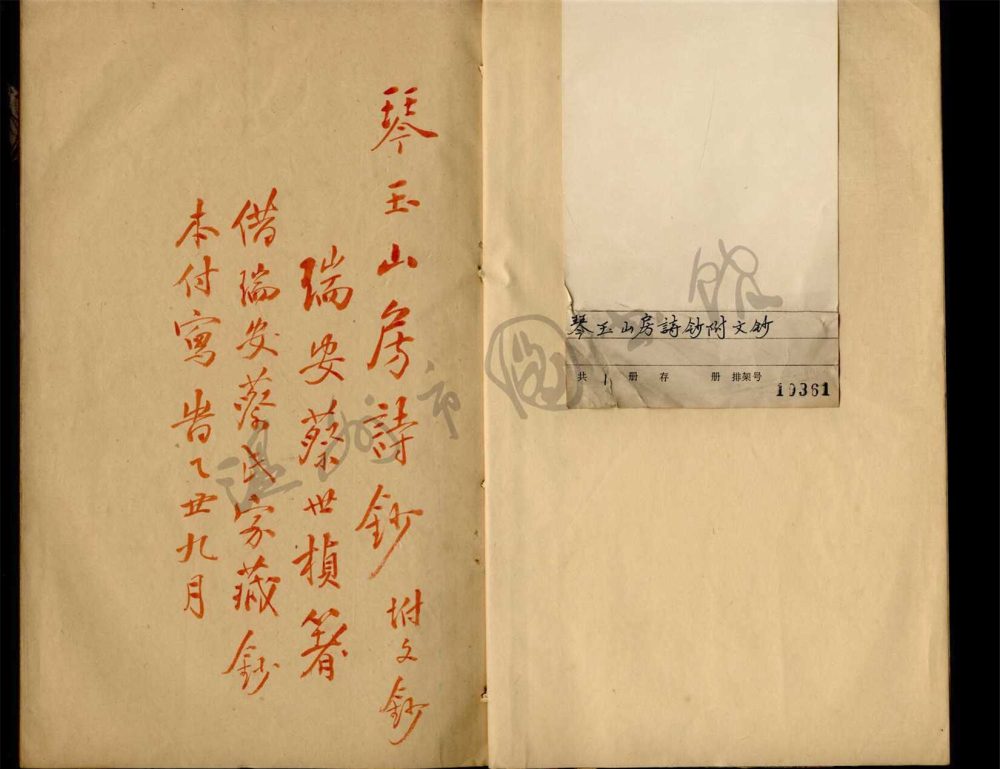 琴玉山房詩鈔 坿文鈔
瑞安蔡世楨箸
借瑞安蔡氏家藏鈔
本付寫 旹乙丑九月
琴玉山房詩鈔附文鈔
共 1 册 存 册 排架号
19361
温州市图书馆